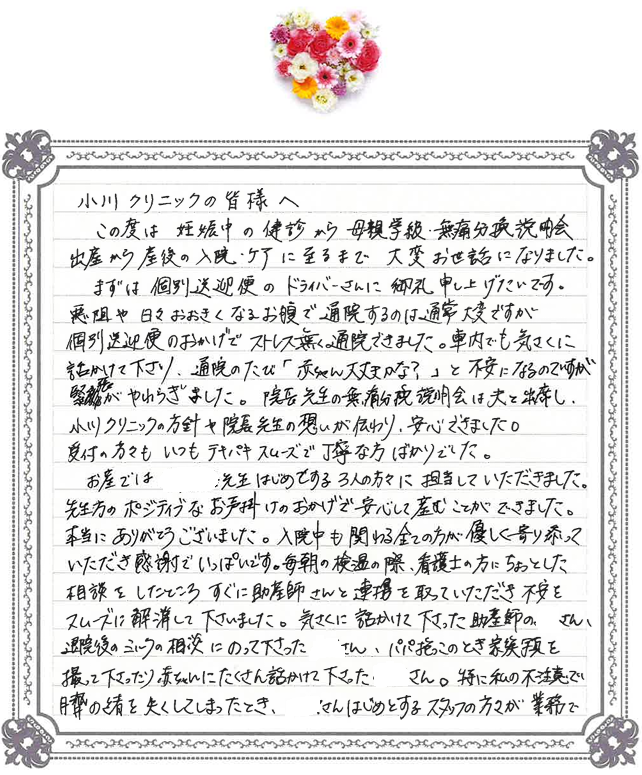 小川クリニックの皆様へ
この度は 妊娠中の健診から 母親学級・無痛分娩説明会
出産から産後の入院・ケアに至るまで 大変お世話になりました。
まずは個別送迎便のドライバーさんに御礼申し上げたいです。
悪阻や日々おおきくなるお腹で通院するのは通常大変ですが
個別送迎便のおかげでストレス無く通院できました。車内でも気さくに
話かけて下さり、通院のたび「赤ちゃん大丈夫かな?」と不安になるのですが
緊張がやわらぎました。院長先生の無痛分娩説明会は夫と出席し、
小川クリニックの方針や院長先生の想いが伝わり、安心できました。
受付の方々もいつもテキパキスムーズで丁寧な方ばかりでした。
お産では 先生はじめとする3人の方々に担当していただきました。
先生方のポジティブなお声掛けのおかげで安心して産むことができました。
本当にありがとうございました。入院中も関わる全ての方が優しく寄り添って
いただき感謝でいっぱいです。毎朝の検温の際、看護士の方にちょっとした
相談をしたところすぐに助産師さんと連携を取っていただき不安を
スムーズに解消して下さいました。気さくに話かけて下さった助産師の さん、
退院後のミルクの相談にのって下さった さん、パパ抱っこのとき家族写真を
撮って下さったり赤ちゃんにたくさん話かけて下さった さん。特に私の不注意で
臍の緒を失くしてしまったとき、 さんはじめとするスタッフの方々が業務で